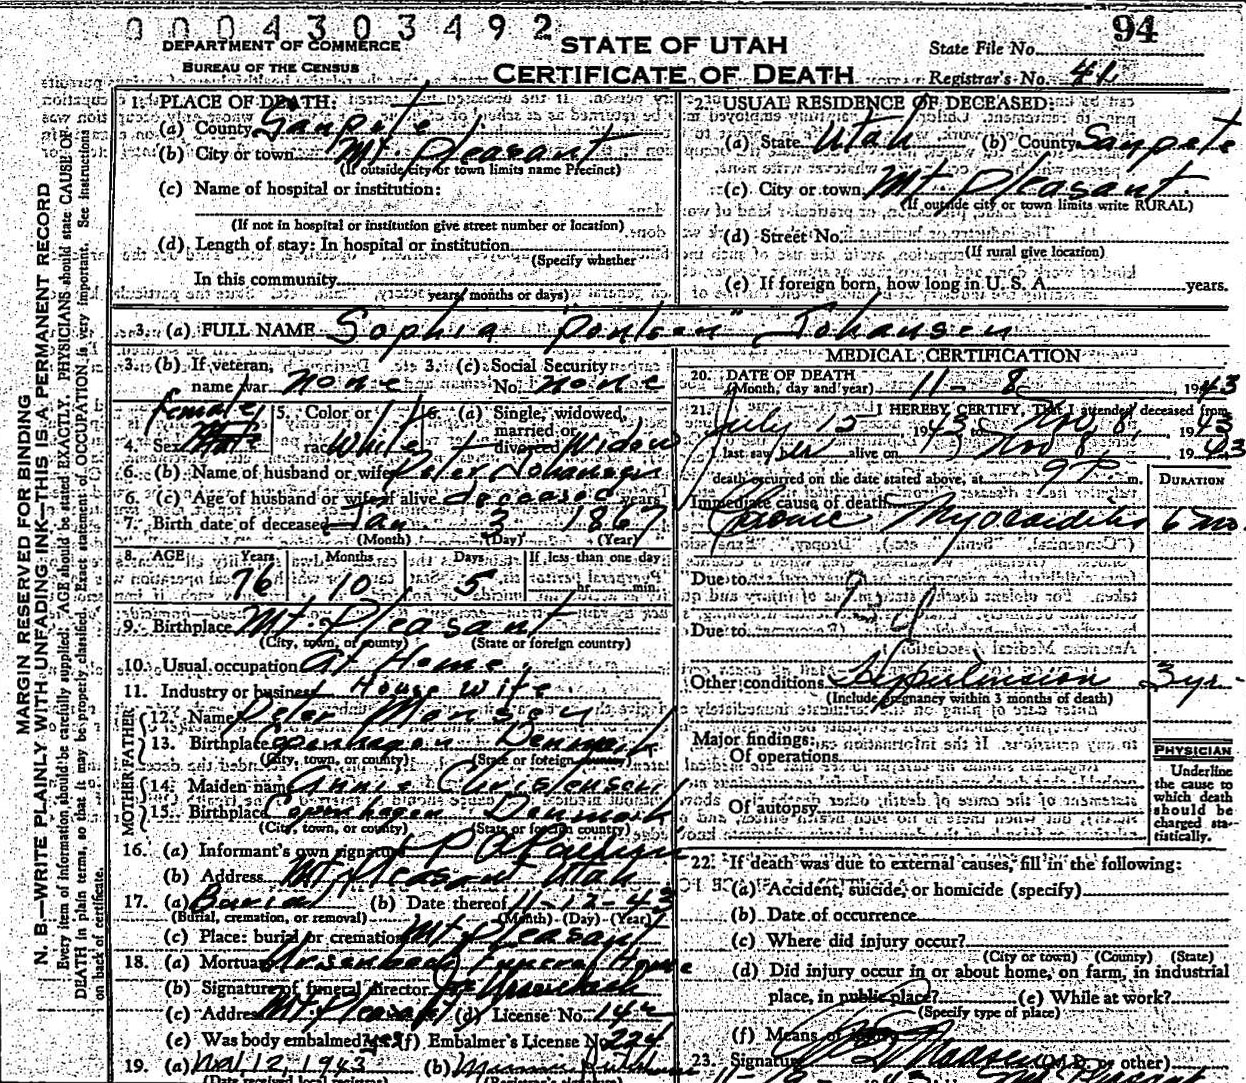 0004303492
94
DEPARTMENT OF COMMERCE
BUREAU OF THE CENSUS
STATE OF UTAH
CERTIFICATE OF DEATH
State File No.
Registrar's No. 41
MARGIN RESERVED FOR BINDING
N. B.—WRITE PLAINLY WITH UNFADING INK—THIS IS A PERMANENT RECORD
Every item of information should be carefully supplied. AGE should be stated EXACTLY. PHYSICIANS should state CAUSE OF
DEATH in plain terms, so that it may be properly classified. Exact statement of OCCUPATION is very important. See instructions
on back of certificate.
1. PLACE OF DEATH:
(a) County Sanpete
(b) City or town Mt. Pleasant
(If outside city or town limits name Precinct)
(c) Name of hospital or institution:
(If not in hospital or institution give street number or location)
(d) Length of stay: In hospital or institution
(Specify whether
In this community
years, months or days)
2. USUAL RESIDENCE OF DECEASED:
(a) State Utah (b) County Sanpete
(c) City or town Mt Pleasant
(If outside city or town limits write RURAL)
(d) Street No.
(If rural give location)
(e) If foreign born, how long in U. S. A. years.
3. (a) FULL NAME Sophia Johansen
3. (b) If veteran, name war none 3. (c) Social Security No. none
female
4. Sex Male 5. Color or race White 6. (a) Single, widowed, married or divorced Widow
6. (b) Name of husband or wife Peter Johansen
6. (c) Age of husband or wife if alive deceased years
7. Birth date of deceased Jan. 3 1867
(Month) (Day) (Year)
8. AGE Years Months Days If less than one day
76 10 5 hr. min.
9. Birthplace Mt. Pleasant
(City, town, or county) (State or foreign country)
10. Usual occupation At Home.
11. Industry or business House Wife
FATHER
12. Name Peter Monsen
13. Birthplace Copenhagen Denmark
(City, town, or county) (State or foreign country)
MOTHER
14. Maiden name Annie Christensen
15. Birthplace Copenhagen Denmark
(City, town, or county) (State or foreign country)
16. (a) Informant's own signature
(b) Address Mt Pleasant Utah
17. (a) Burial (b) Date thereof 11-12-43
(Burial, cremation, or removal) (Month) (Day) (Year)
(c) Place: burial or cremation Mt Pleasant
18. (a) Mortuary Ursenbach Funeral Home
(b) Signature of funeral director Ursenbach
(c) Address Mt Pleasant (d) License No. 142
(e) Was body embalmed? yes (f) Embalmer's License No. 224
19. (a) Nov. 12, 1943 (b)
(Date received local registrar) (Registrar's signature)
MEDICAL CERTIFICATION
20. DATE OF DEATH
(Month, day and year) 11- 8 , 1943
21. I HEREBY CERTIFY, That I attended deceased from
July 15 , 1943, to Nov 8, , 1943
I last saw her alive on Nov 8 , 1943
death occurred on the date stated above, at 9 P. m.
DURATION
Immediate cause of death
Chronic Myocarditis 6 mo.
Due to
Due to
Other conditions Hypertension 3 yr.
(Include pregnancy within 3 months of death)
Major findings:
Of operations
Of autopsy
PHYSICIAN
Underline
the cause to
which death
should be
charged sta-
tistically.
22. If death was due to external causes, fill in the following:
(a) Accident, suicide, or homicide (specify)
(b) Date of occurrence
(c) Where did injury occur?
(City or town) (County) (State)
(d) Did injury occur in or about home, on farm, in industrial
place, in public place? (e) While at work?
(Specify type of place)
(f) Means of injury
23. Signature Madsen (M.D. or other)